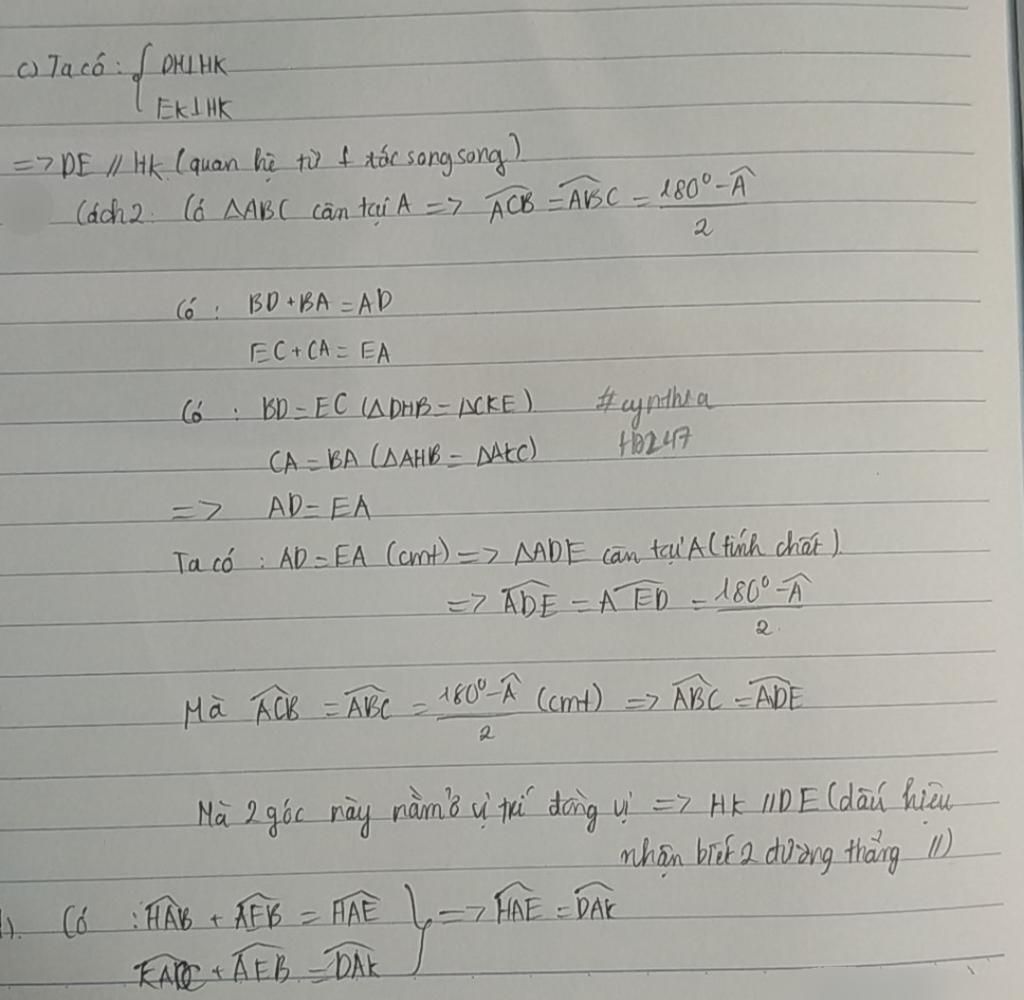 c) Ta có : { DH⊥HK
EK⊥HK
=> DE // HK (quan hệ từ ⊥ xác song song)
Cách 2. Có ΔABC cân tại A => ACB^ = ABC^ = (180° - A^)/2
Có : BD + BA = AD
EC + CA = EA
Có : BD = EC (ΔDHB = ΔCKE) #cynthia
CA = BA (ΔAHB = ΔAKC) HD247
=> AD = EA
Ta có : AD = EA (cmt) => ΔADE cân tại A (tính chất).
=> ADE^ = AED^ = (180° - A^)/2.
Mà ACB^ = ABC^ = (180° - A^)/2 (cmt) => ABC^ = ADE^
Mà 2 góc này nằm ở vị trí đồng vị => HK // DE (dấu hiệu
nhận biết 2 đường thẳng //)
Có : HAB^ + AEB^ = HAE^ } => HAE^ = DAK^
+ AEB^ = DAK^